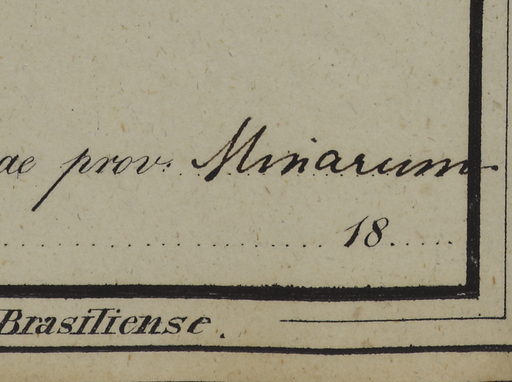 ae prov. Minarum
18
Brasiliense.